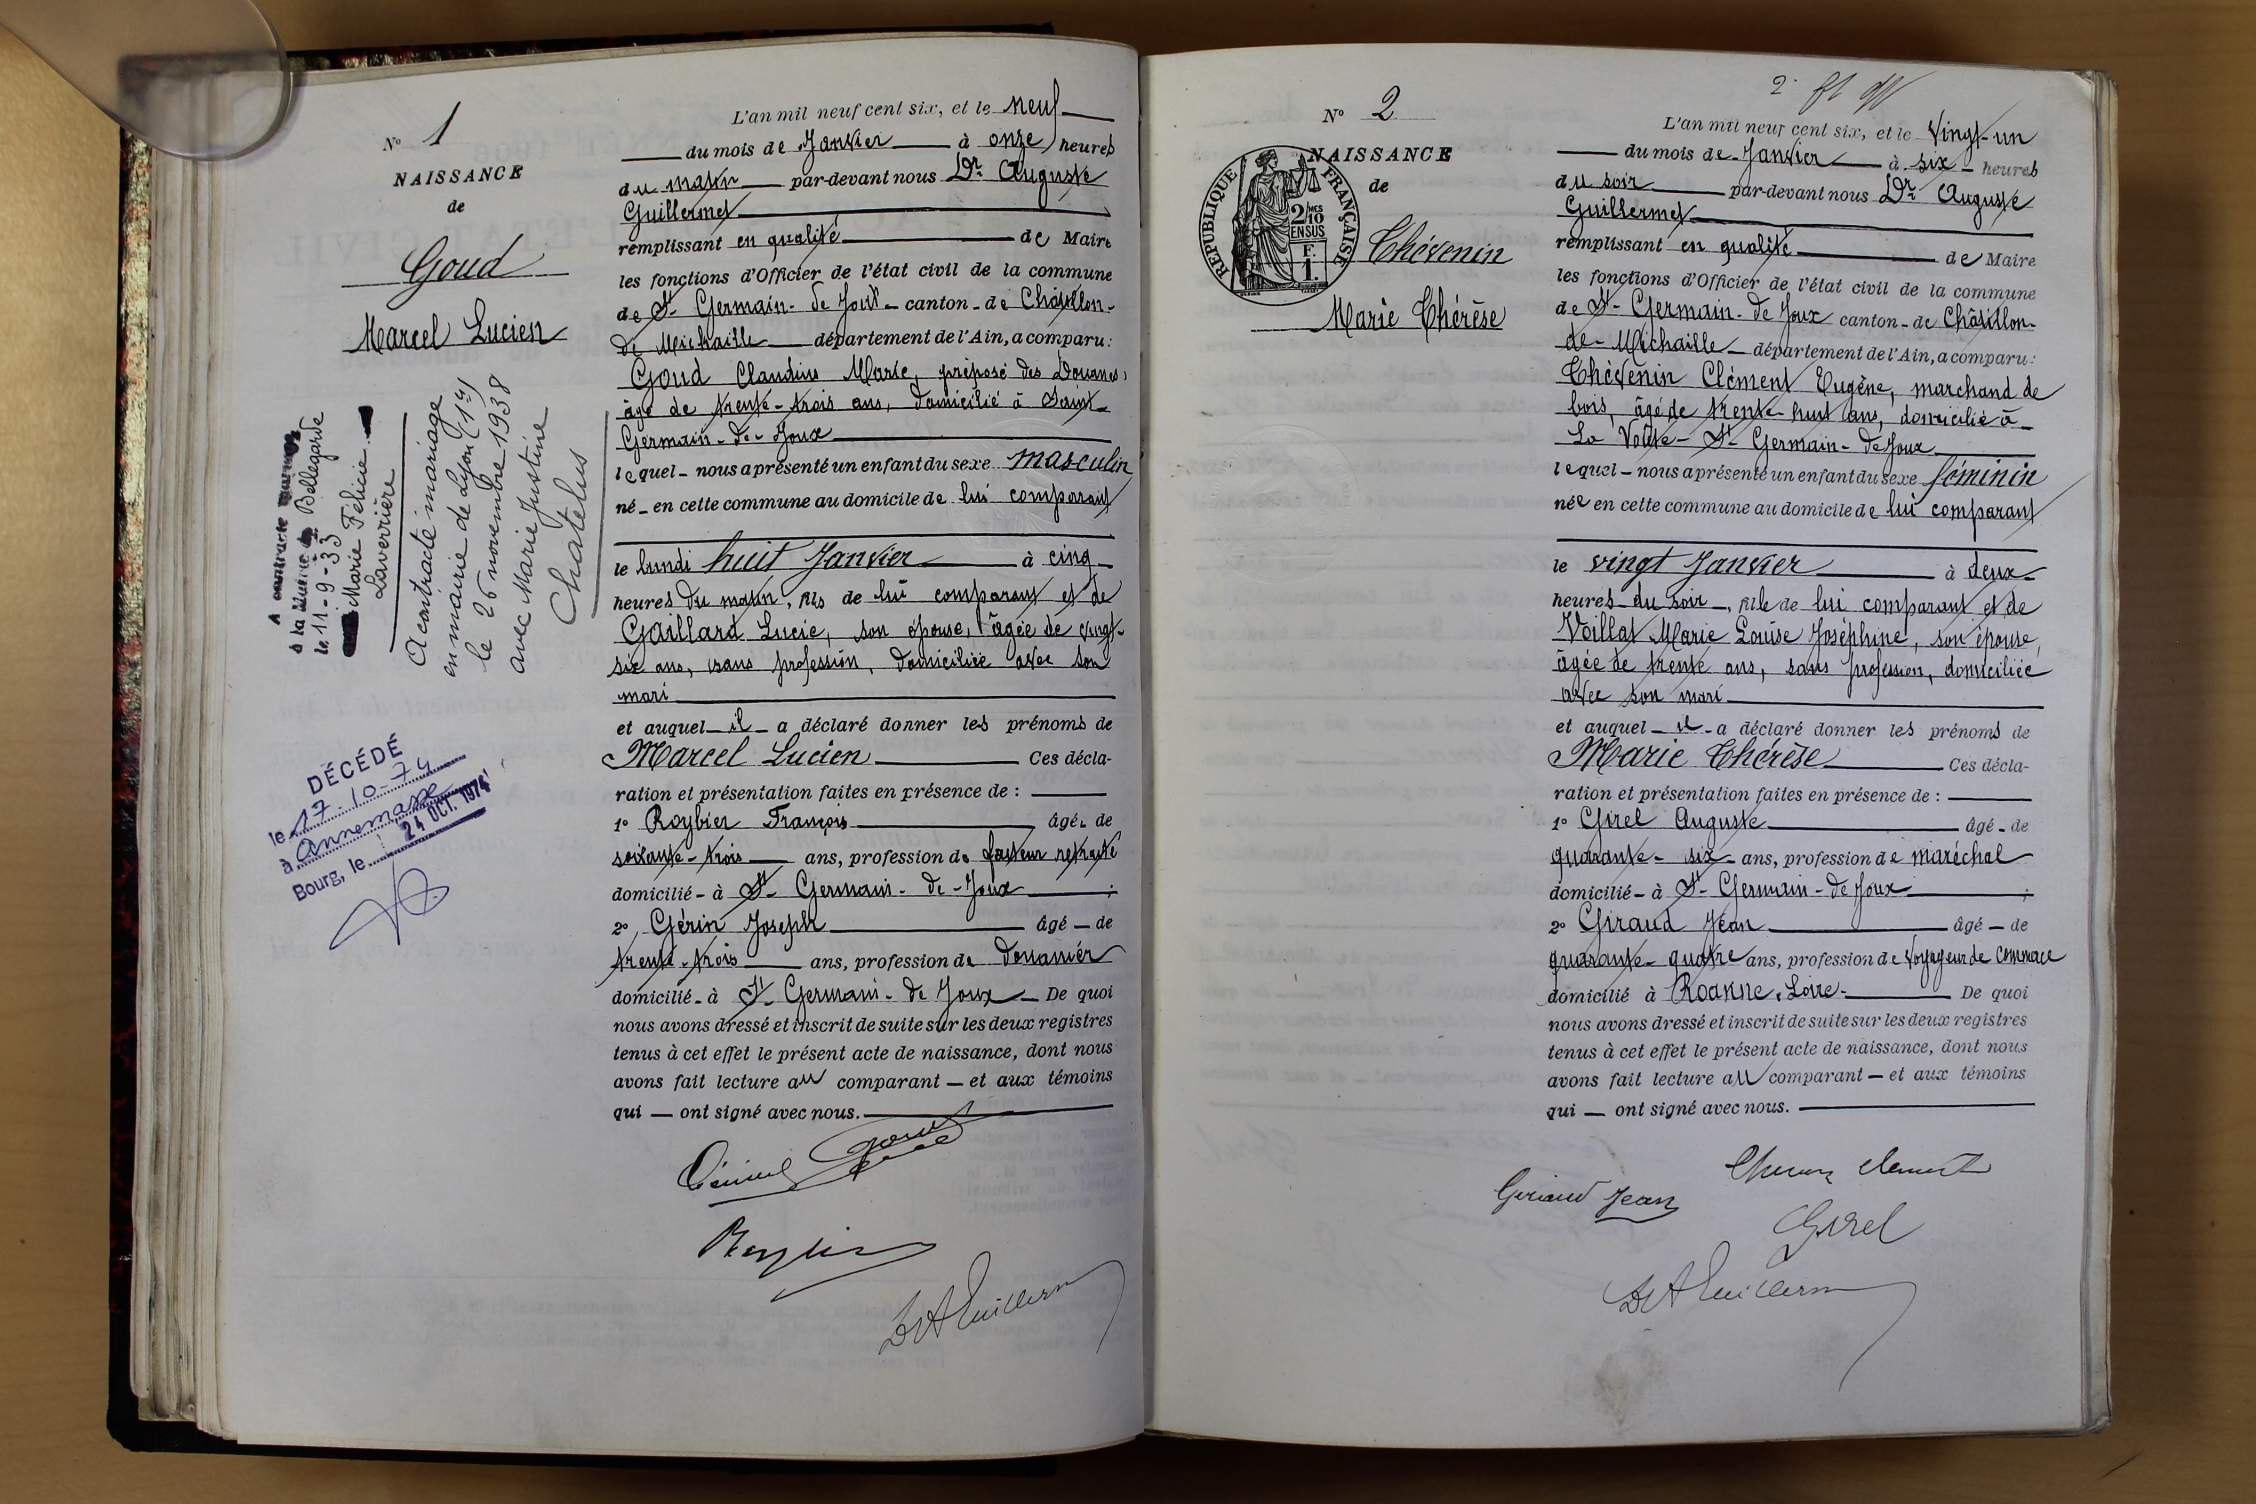 N° 1
NAISSANCE
de
Goud
Marcel Lucien
A contracté
à la Mairie de Bellegarde
le 11-9-33
Marie Felicie
Laverrière
A contracté mariage
en mairie de Lyon (1er)
le 26 novembre 1938
avec Marie Justine
Chatelus
DÉCÉDÉ
le 17-10-74
à Annemasse
Bourg, le 24 OCT. 1974
L'an mil neuf cent six, et le neuf
du mois de Janvier à onze heures
du matin par-devant nous Dr Auguste
Guillermet
remplissant en qualité de Maire
les fonctions d'Officier de l'état civil de la commune
de St Germain-de Joux canton de Châtillon-
de Michaille département de l'Ain, a comparu:
Goud Claudius Marie, préposé des Douanes,
âgé de trente-trois ans, domicilié à Saint-
Germain-de-Joux
lequel nous a présenté un enfant du sexe masculin
né en cette commune au domicile de lui comparant
le lundi huit Janvier à cinq
heures du matin, fils de lui comparant et de
Gaillard Lucie, son épouse, âgée de vingt-
six ans, sans profession, domiciliée avec son
mari
et auquel il a déclaré donner les prénoms de
Marcel Lucien Ces décla-
ration et présentation faites en présence de :
1° Roybier François âgé de
soixante-trois ans, profession de facteur retraité
domicilié à St Germain-de-Joux ;
2° Gérin Joseph âgé de
trente-trois ans, profession de douanier
domicilié à St Germain-de Joux De quoi
nous avons dressé et inscrit de suite sur les deux registres
tenus à cet effet le présent acte de naissance, dont nous
avons fait lecture au comparant et aux témoins
qui ont signé avec nous.
Goud
Roybier
Dr A Guillermet
N° 2
NAISSANCE
de
RÉPUBLIQUE FRANÇAISE
2/10 MES
EN SUS
F.
1.
Thévenin
Marie Thérèse
L'an mil neuf cent six, et le vingt-un
du mois de Janvier à six heures
du soir par-devant nous Dr Auguste
Guillermet
remplissant en qualité de Maire
les fonctions d'Officier de l'état civil de la commune
de St Germain-de Joux canton de Châtillon-
de-Michaille département de l'Ain, a comparu:
Thévenin Clément Eugène, marchand de
bois, âgé de trente-huit ans, domicilié à
La Voute-St Germain-de Joux
lequel nous a présenté un enfant du sexe féminin
née en cette commune au domicile de lui comparant
le vingt Janvier à deux
heures du soir, fille de lui comparant et de
Voillat Marie Louise Joséphine, son épouse,
âgée de trente ans, sans profession, domiciliée
avec son mari
et auquel il a déclaré donner les prénoms de
Marie Thérèse Ces décla-
ration et présentation faites en présence de :
1° Girel Auguste âgé de
quarante-six ans, profession de maréchal
domicilié à St Germain-de Joux ;
2° Giraud Jean âgé de
quarante-quatre ans, profession de Voyageur de Commerce
domicilié à Roanne, Loire. De quoi
nous avons dressé et inscrit de suite sur les deux registres
tenus à cet effet le présent acte de naissance, dont nous
avons fait lecture au comparant et aux témoins
qui ont signé avec nous.
Clement
Giraud Jean
Girel
Dr A Guillermet